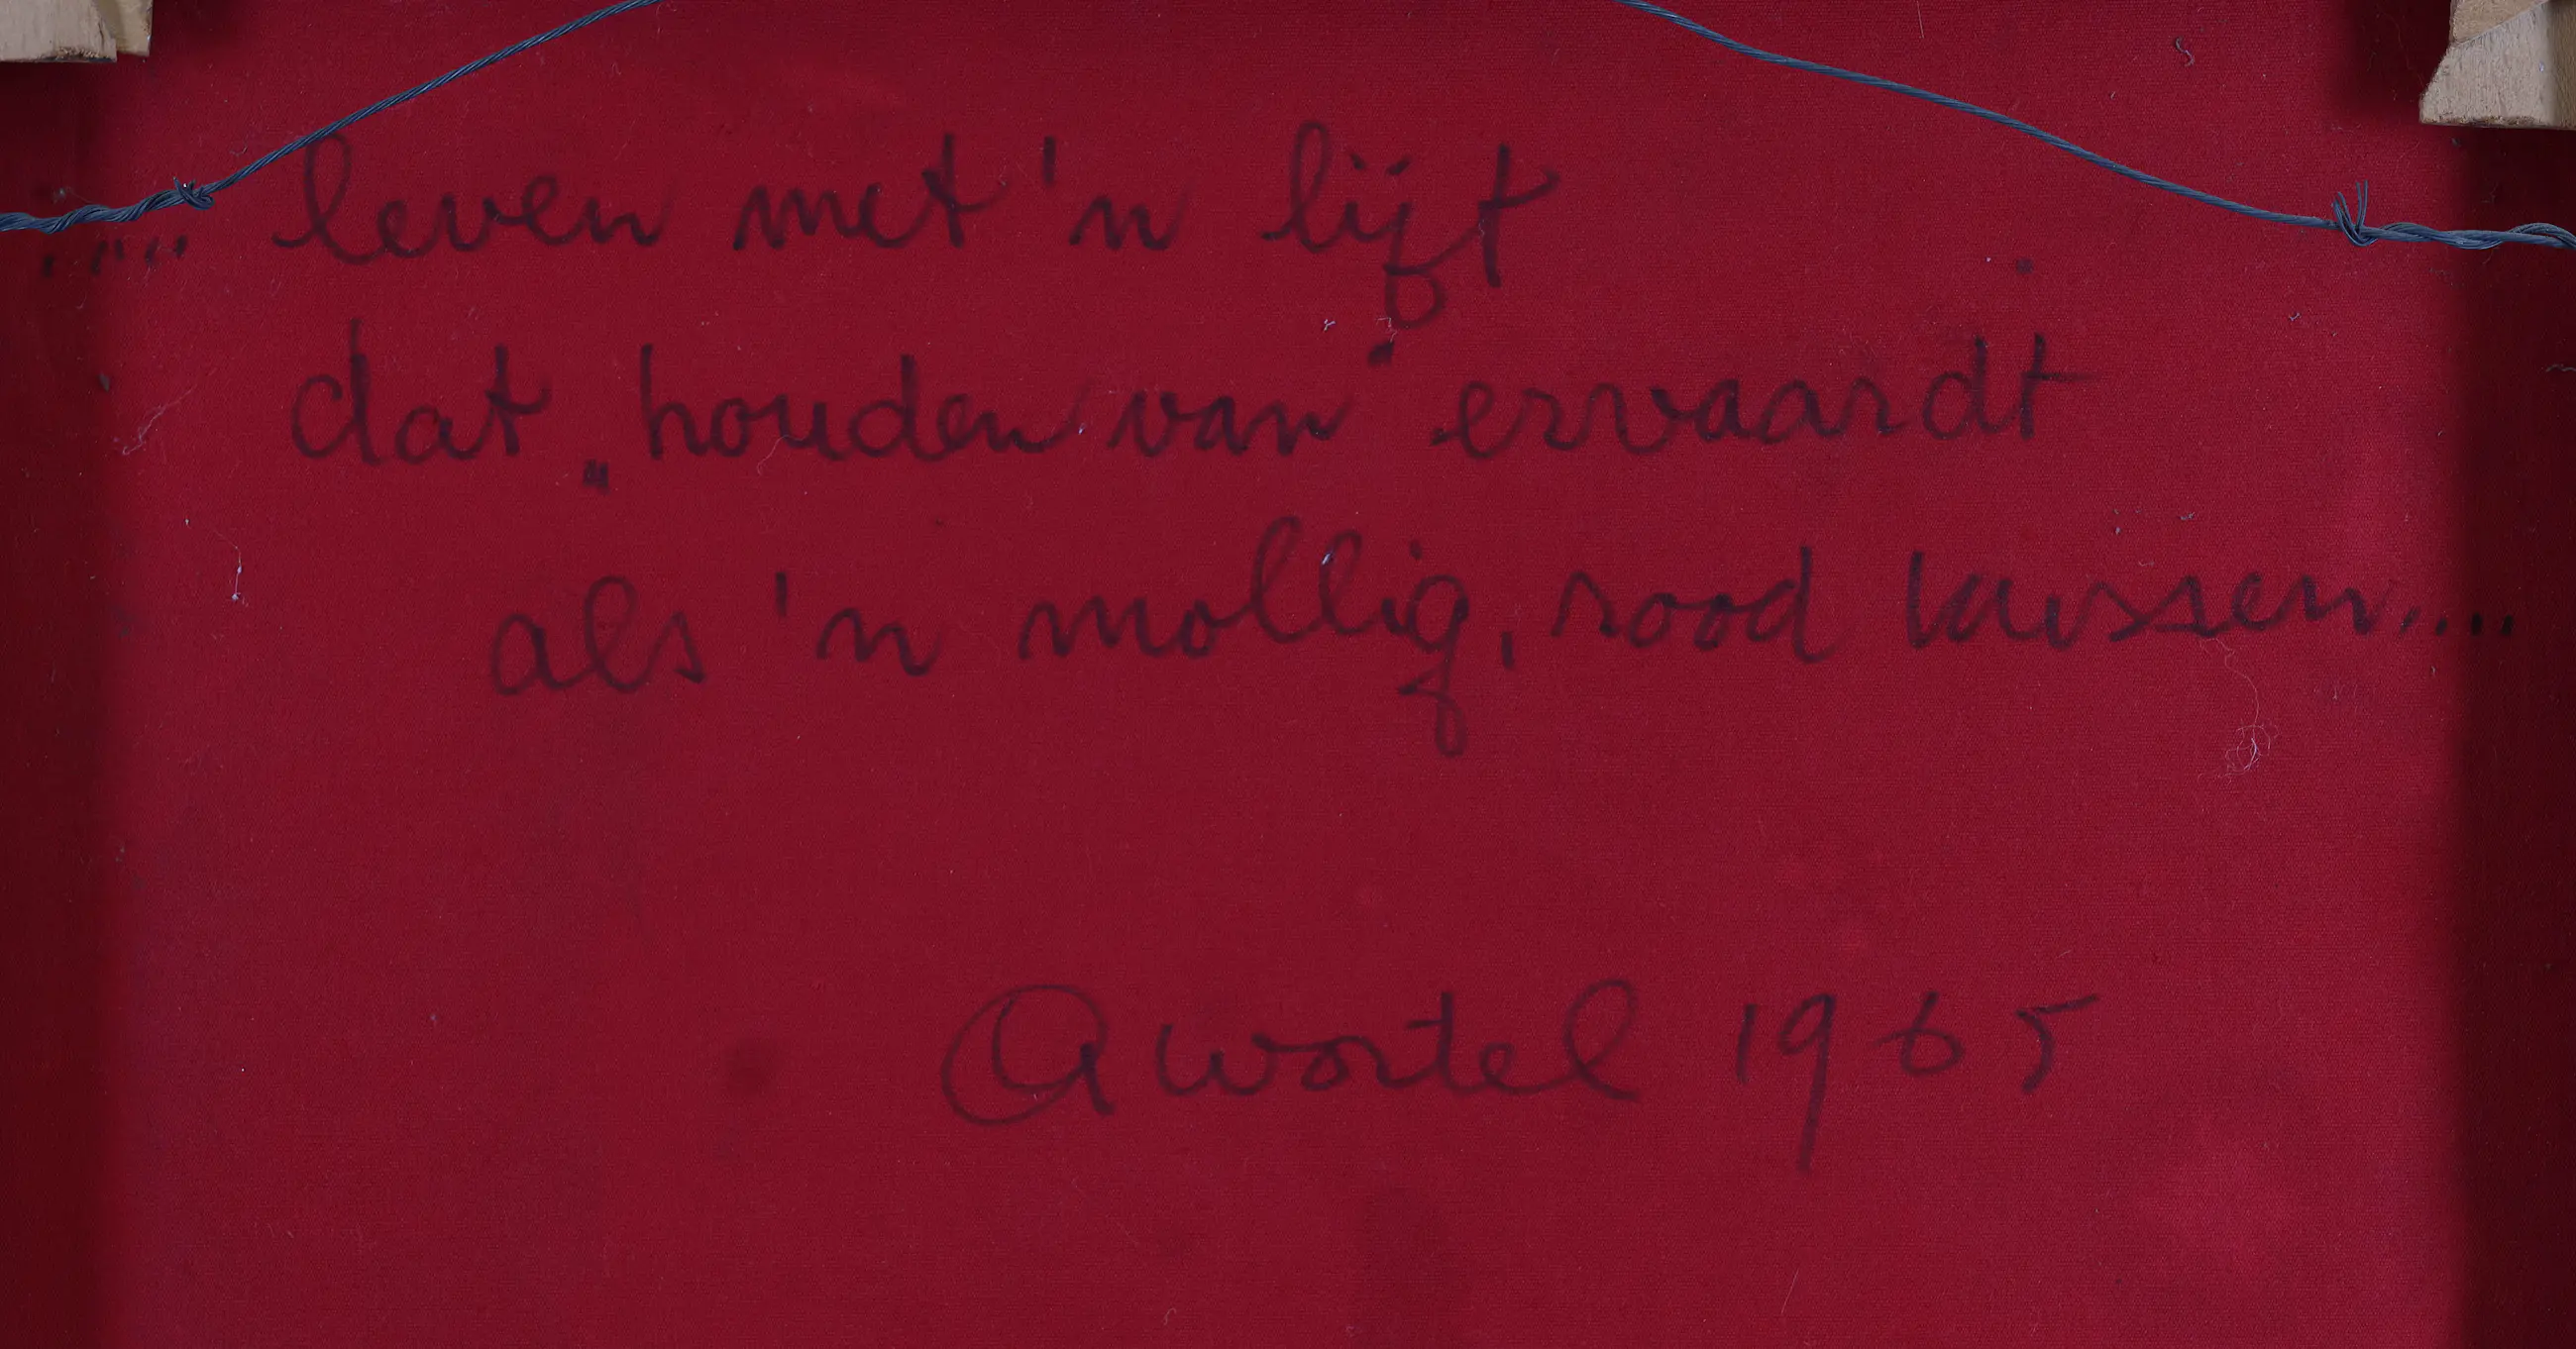 .... leven met 'n lijf
dat „houden van" ervaardt
als 'n mollig, rood kussen....
A wortel 1965